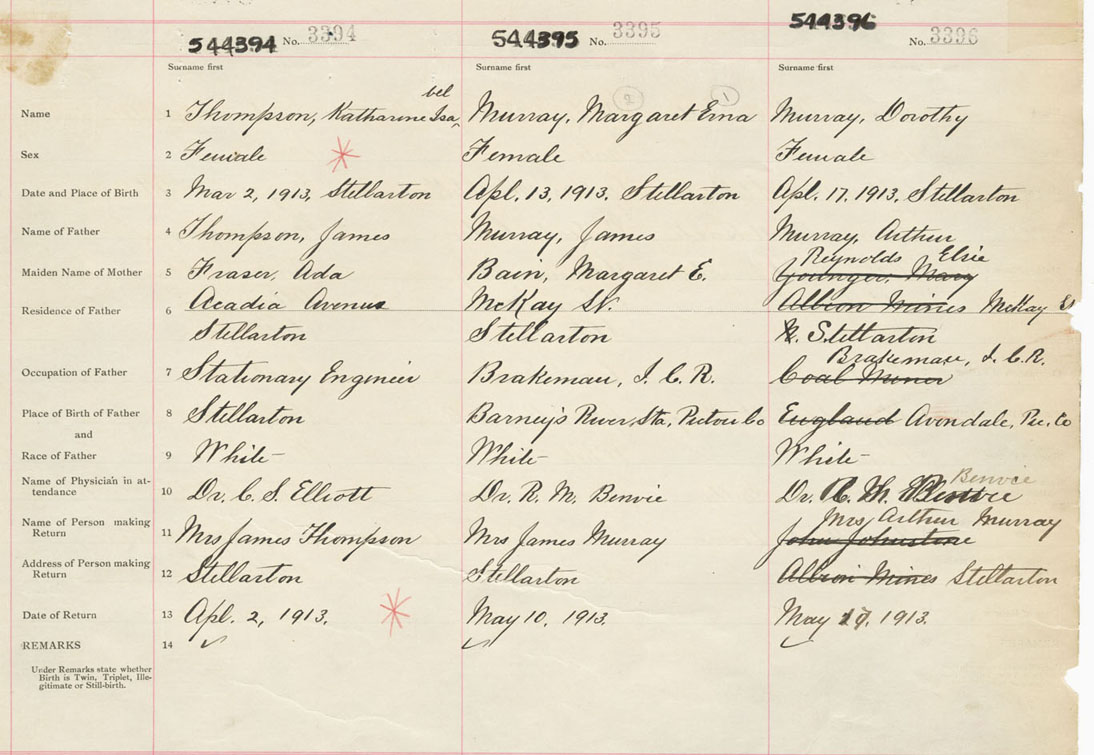 544394 No. 3394 544395 No. 3395 544396 No. 3396
Surname first Surname first Surname first
bel 2 1
Name 1 Thompson, Katharine Isa Murray, Margaret Erna Murray, Dorothy
Sex 2 Female Female Female
Date and Place of Birth 3 Mar 2, 1913, Stellarton Apl. 13, 1913. Stellarton Apl. 17, 1913, Stellarton
Name of Father 4 Thompson, James Murray, James Murray, Arthur
Reynolds Elsie
Maiden Name of Mother 5 Fraser, Ada Bain, Margaret E. Younger, Mary
Residence of Father 6 Acadia Avenue McKay St. Albion Mines McKay
Stellarton Stellarton Stellarton
Brakeman, I. C. R.
Occupation of Father 7 Stationary Engineer Brakeman, I. C. R. Coal Miner
Place of Birth of Father 8 Stellarton Barney's River Sta, Pictou Co England Avondale, Pic. Co
and
Race of Father 9 White White White
Name of Physician in at-
tendance 10 Dr. C. S. Elliott Dr. R. M. Benvie Dr. Benvie
Benvie
Name of Person making
Return 11 Mrs James Thompson Mrs James Murray John Johnstone
Mrs Arthur Murray
Address of Person making
Return 12 Stellarton Stellarton Albion Mines Stellarton
Date of Return 13 Apl. 2, 1913. May 10, 1913. May 1913.
REMARKS 14
Under Remarks state whether
Birth is Twin, Triplet, Ille-
gitimate or Still-birth.